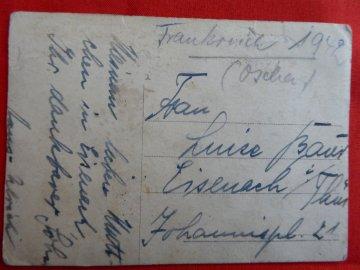 Frankreich 1942
(Oscher)
Frau
Luise Bauer
Eisenach i/Thür
Johannispl. 21
Meinem lieben Mutt-
chen in Eisenach
Ihr dankbarer Sohn